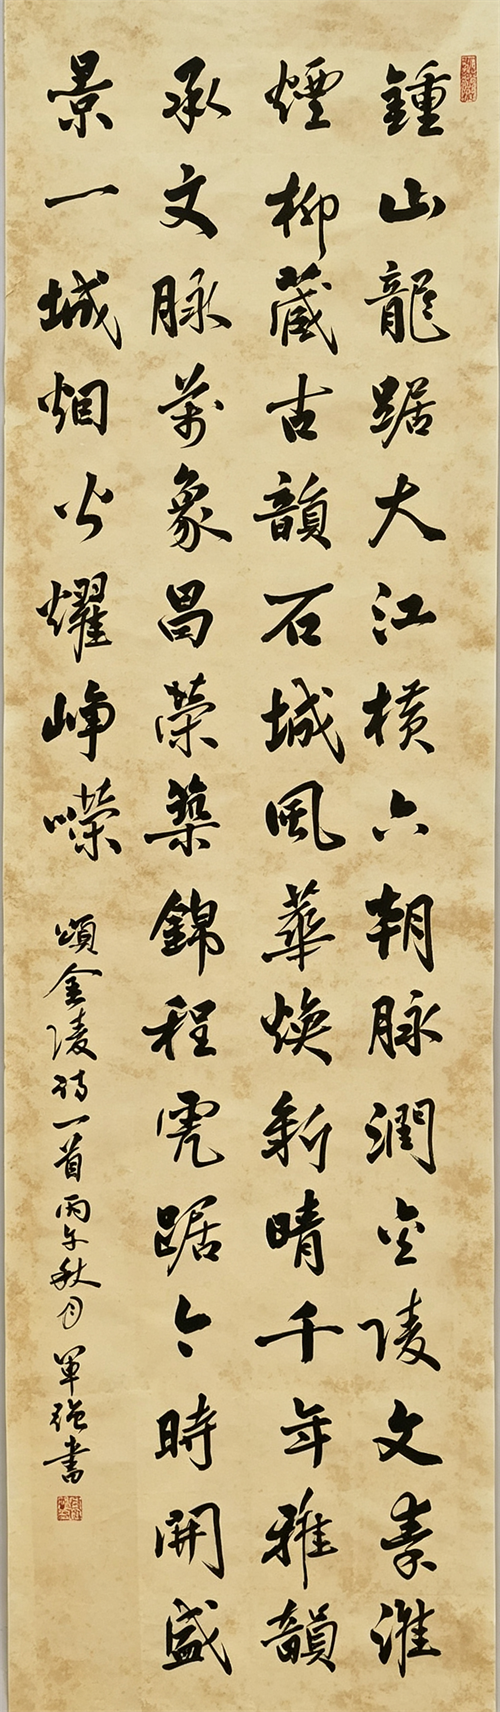 鍾山龍踞大江橫六朝脉潤金陵文秦淮
煙柳藏古韻石城風華煥新晴千年雅韻
承文脉萬象昌榮築錦程虎踞今時開盛
景一城烟火耀崢嶸
頌金陵詩一首丙午秋月軍強書